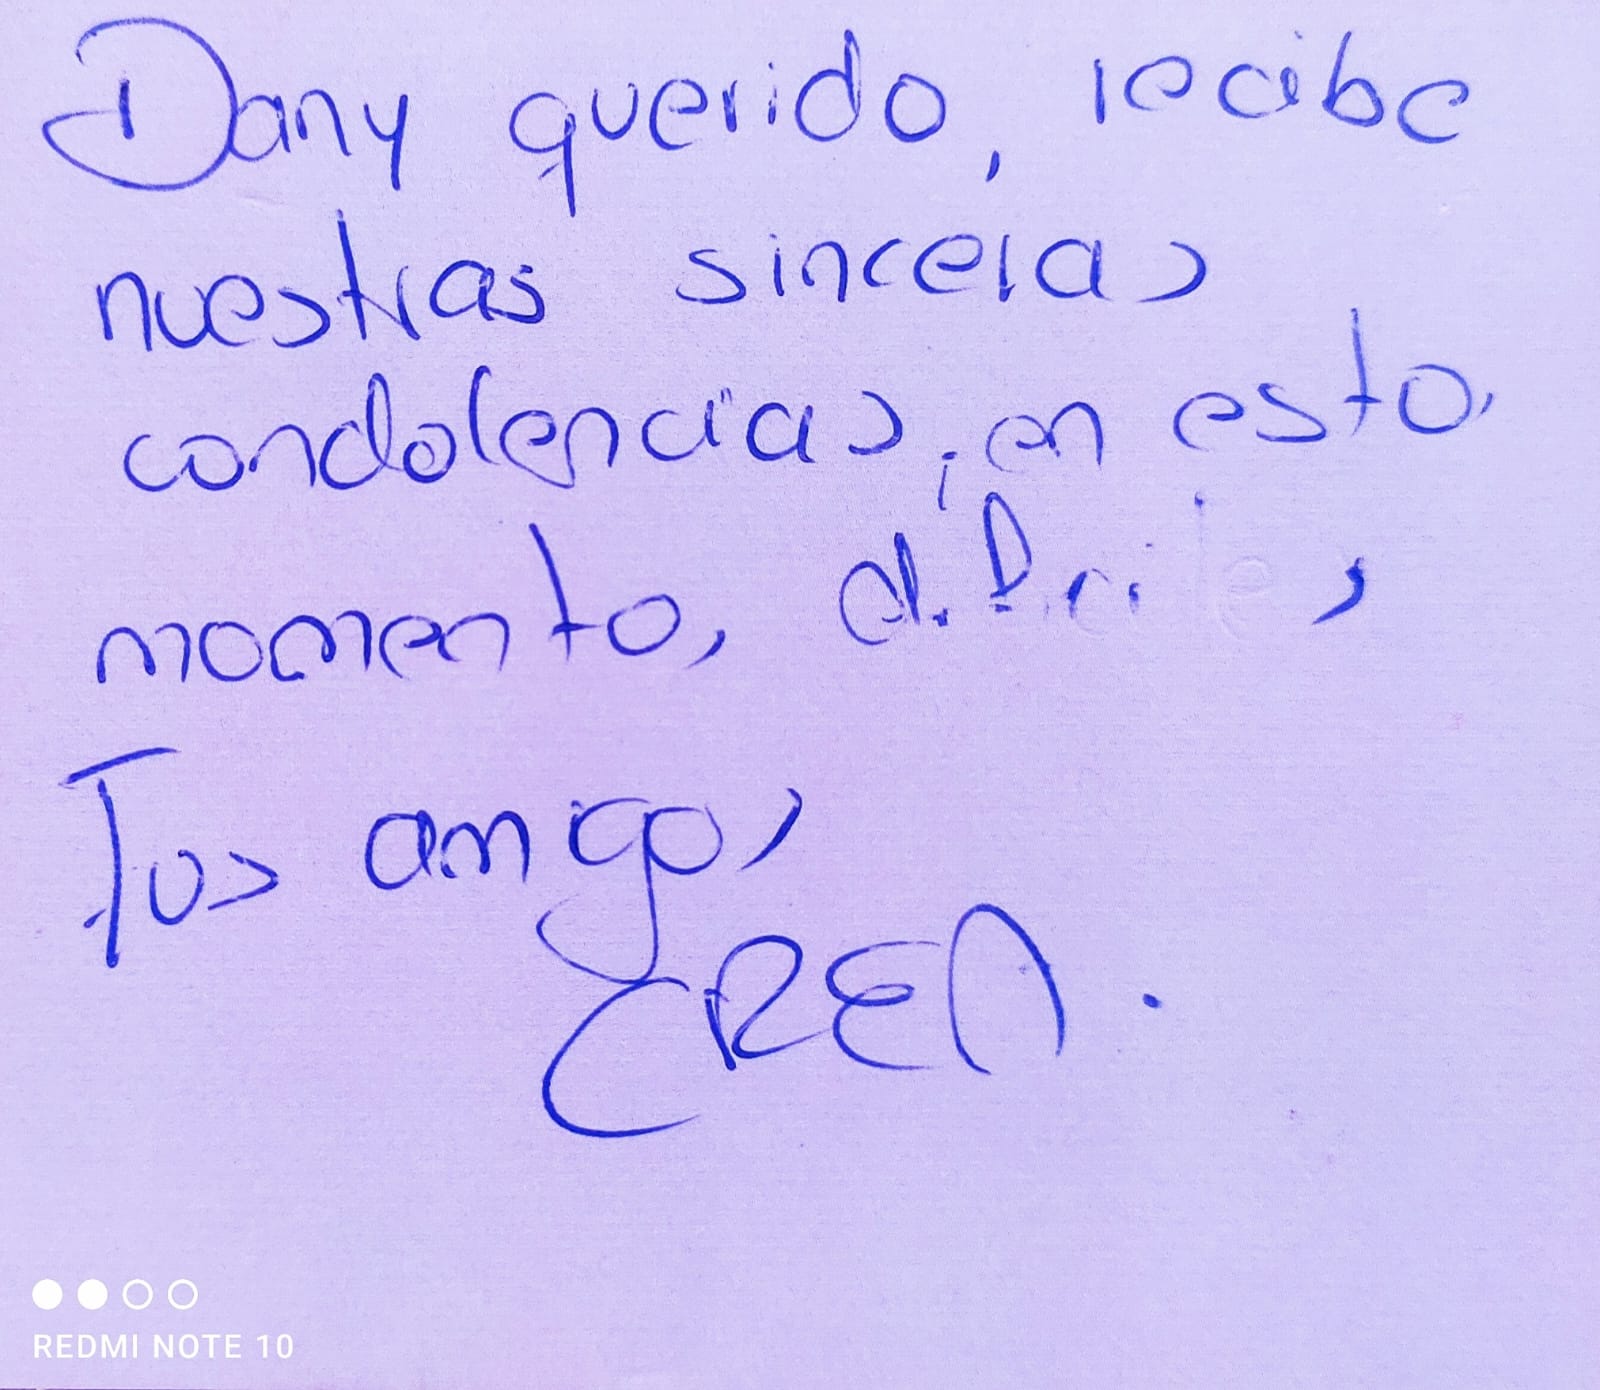 Dany querido, recibe
nuestras sinceras
condolencias, en estos
momentos difíciles
Tus amigos
CREA.
REDMI NOTE 10